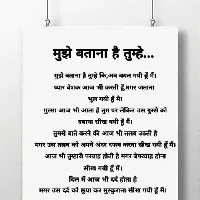 मुझे बताना है तुम्हे...
मुझे बताना है तुम्हे कि,अब बदल गयी हूँ मैं।
प्यार बेशक आज भी करती हूँ,मगर जताना
भूल गयी हूँ मैं।
गुस्सा आज भी आता है तुम पर लेकिन उस गुस्से को
दबाना सीख गयी हूँ मैं।
तुमसे बाते करने की आज भी तलब उठती है
मगर उस तलब को अपने अंदर मारना सीख गयी हूँ मैं।
आज भी तुम्हारी परवाह होती है मगर बेपरवाह होना
सीख गयी हूँ मैं।
दिल में आज भी दर्द होता है
मगर उस दर्द को छुपा कर मुस्कुराना सीख गयी हूँ मैं।